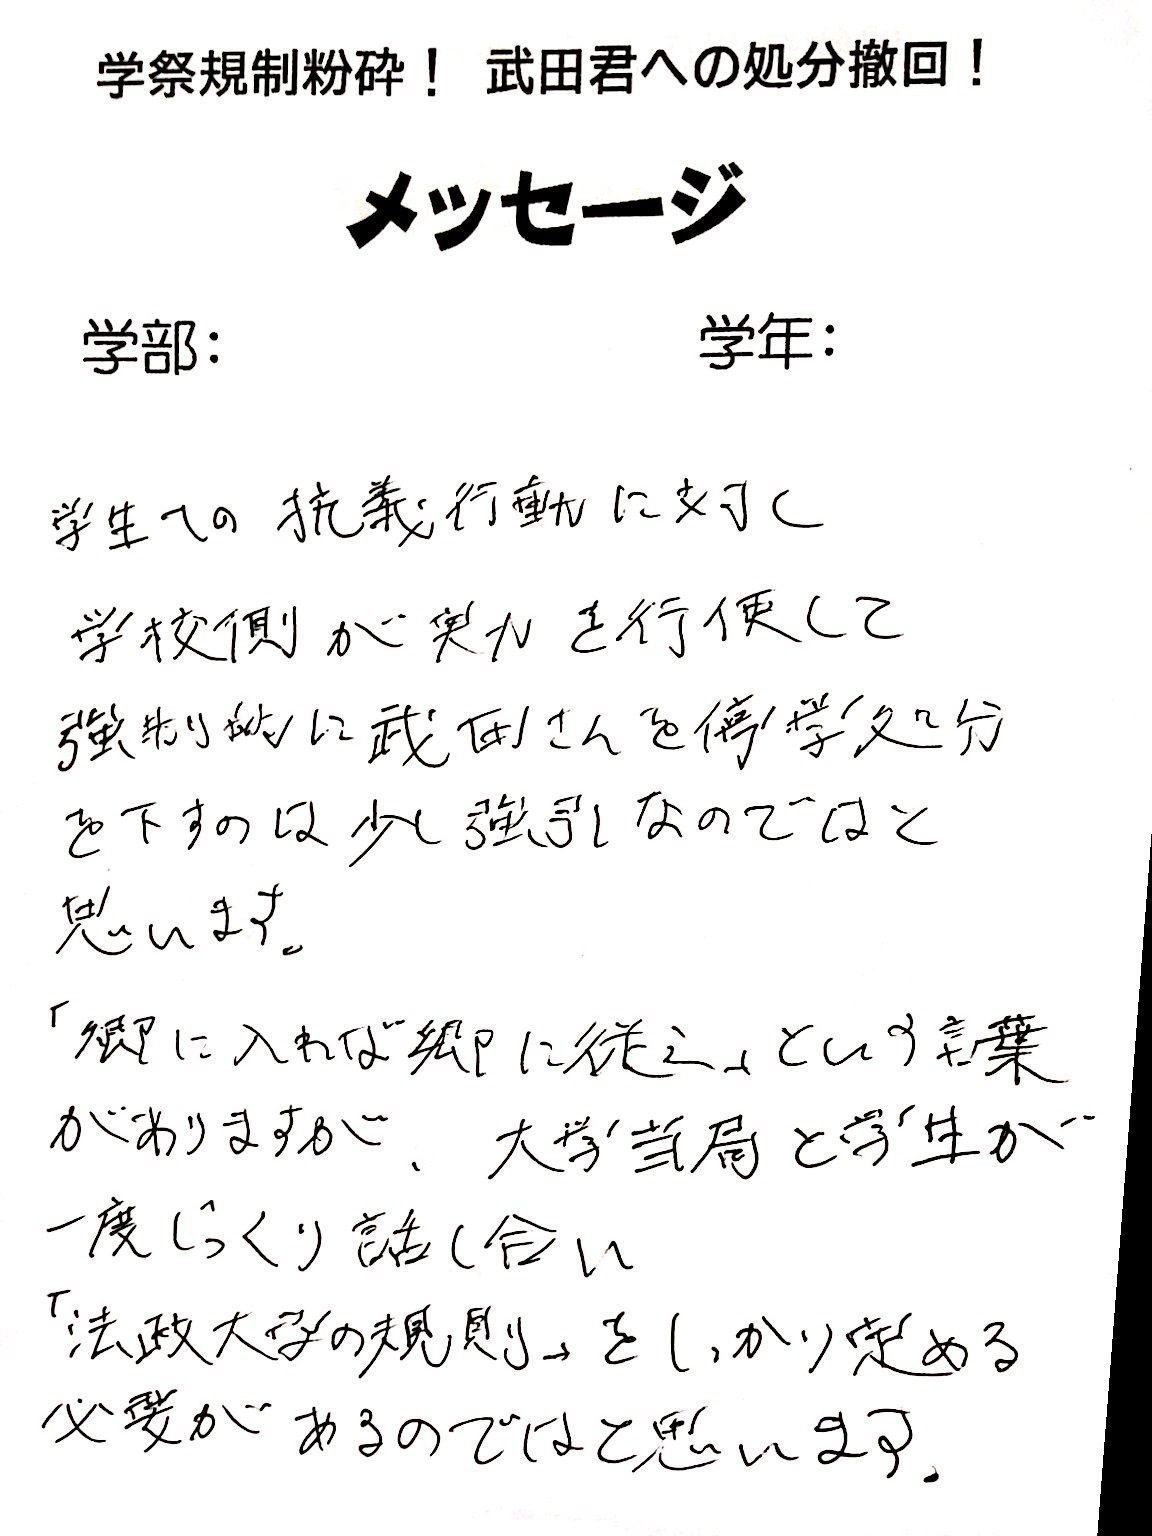 学祭規制粉砕！ 武田君への処分撤回！
メッセージ
学部： 学年：
学生への抗議行動に対し
学校側が実力を行使して
強制的に武田さんを停学処分
を下すのは少し強引なのではと
思います。
「郷に入れば郷に従え」という言葉
がありますが、大学当局と学生が
一度じっくり話し合い
「法政大学の規則」をしっかり定める
必要があるのではと思います。